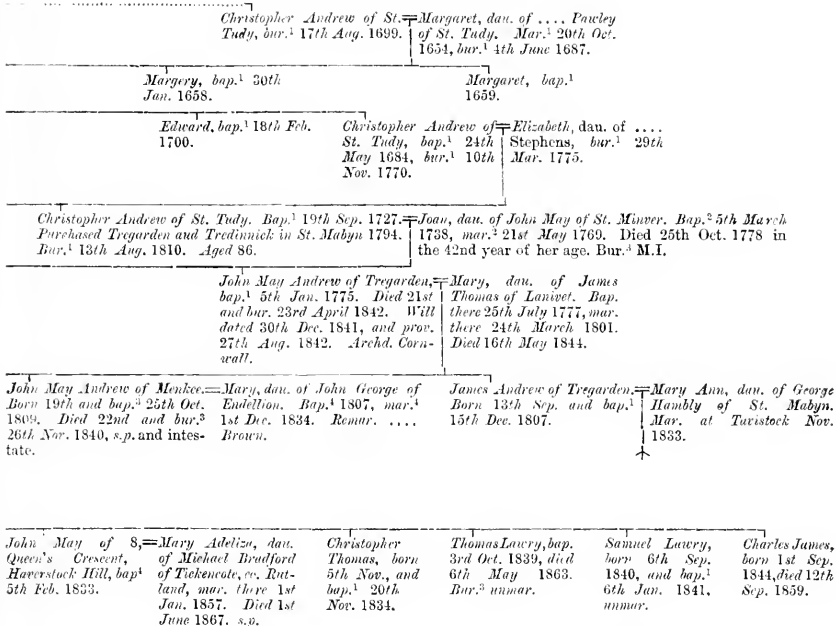 Christopher Andrew of St.
Tudy, bur.¹ 17th Aug. 1699.
Margaret, dau. of .... Pawley
of St. Tudy. Mar.¹ 20th Oct.
1654, bur.¹ 4th June 1687.
Margery, bap.¹ 30th
Jan. 1658.
Margaret, bap.¹
1659.
Edward, bap.¹ 18th Feb.
1700.
Christopher Andrew of
St. Tudy, bap.¹ 24th
May 1684, bur.¹ 10th
Nov. 1770.
Elizabeth, dau. of ....
Stephens, bur.¹ 29th
Mar. 1775.
Christopher Andrew of St. Tudy. Bap.¹ 19th Sep. 1727.
Purchased Tregarden and Tredinnick in St. Mabyn 1794.
Bur.¹ 13th Aug. 1810. Aged 86.
Joan, dau. of John May of St. Minver. Bap.² 5th March
1738, mar.² 21st May 1769. Died 25th Oct. 1778 in
the 42nd year of her age. Bur. M.I.
John May Andrew of Tregarden,
bap.¹ 5th Jan. 1775. Died 21st
and bur. 23rd April 1842. Will
dated 30th Dec. 1841, and prov.
27th Aug. 1842. Archd. Corn-
wall.
Mary, dau. of James
Thomas of Lanivet. Bap.
there 25th July 1777, mar.
there 24th March 1801.
Died 16th May 1844.
John May Andrew of Menkee.
Born 19th and bap.³ 25th Oct.
1809. Died 22nd and bur.³
26th Nov. 1840, s.p. and intes-
tate.
Mary, dau. of John George of
Endellion. Bap.⁴ 1807, mar.⁴
1st Dec. 1834. Remar. ....
Brown.
James Andrew of Tregarden.
Born 13th Sep. and bap.¹
15th Dec. 1807.
Mary Ann, dau. of George
Hambly of St. Mabyn.
Mar. at Tavistock Nov.
1833.
John May of 8,
Queen's Crescent,
Haverstock Hill, bap⁴
5th Feb. 1833.
Mary Adeliza, dau.
of Michael Bradford
of Tickencote, co. Rut-
land, mar. there 1st
Jan. 1857. Died 1st
June 1867. s.p.
Christopher
Thomas, born
5th Nov., and
bap.¹ 20th
Nov. 1834.
Thomas Lawry, bap.
3rd Oct. 1839, died
6th May 1863.
Bur.³ unmar.
Samuel Lawry,
born 6th Sep.
1840, and bap.¹
6th Jan. 1841,
unmar.
Charles James,
born 1st Sep.
1844, died 12th
Sep. 1859.